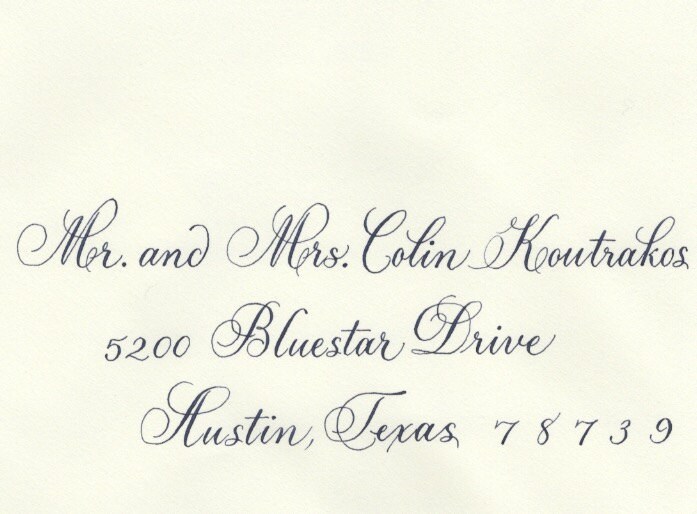 Mr. and Mrs. Colin Koutrakos
5200 Bluestar Drive
Austin, Texas 78739